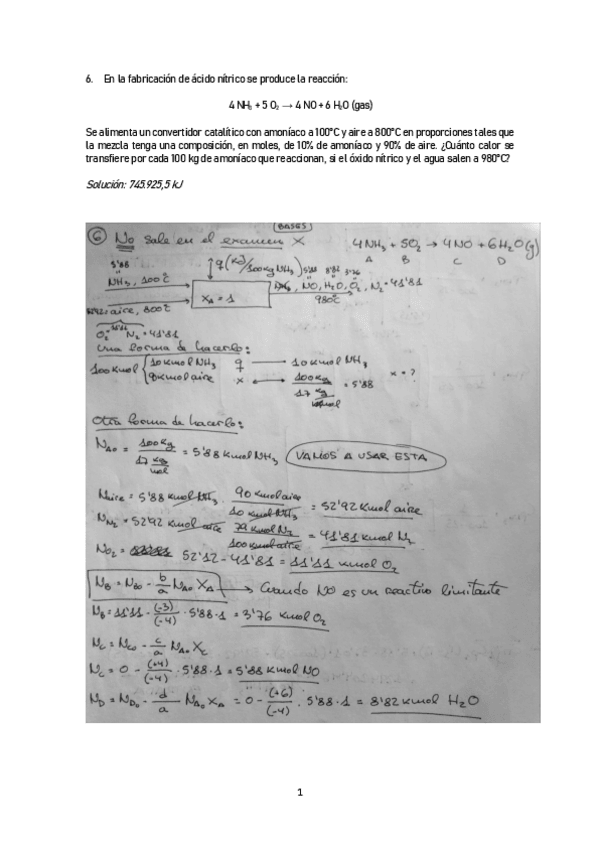 6. En la fabricación de ácido nítrico se produce la reacción:
4 NH₃ + 5 O₂ → 4 NO + 6 H₂O (gas)
Se alimenta un convertidor catalítico con amoníaco a 100°C y aire a 800°C en proporciones tales que
la mezcla tenga una composición, en moles, de 10% de amoníaco y 90% de aire. ¿Cuánto calor se
transfiere por cada 100 kg de amoníaco que reaccionan, si el óxido nítrico y el agua salen a 980°C?
Solución: 745.925,5 kJ
BASES
⑥ No sale en el examen X 4NH₃ + 5O₂ → 4NO + 6H₂O(g)
A B C D
5'88 q (KJ/100kg NH₃) 5'88 8'82 3'76
NH₃, 100°C NO, H₂O, O₂, N₂ = 41'81
X_A = 1 980°C
aire, 800°C
O₂ N₂ = 41'81
Una forma de hacerlo:
100 kmol 10 kmol NH₃ 9 → 10 kmol NH₃
aire x ← 100 kg / 17 kg/kmol = 5'88 x = ?
Otra forma de hacerlo:
N_A0 = 100 kg / 17 kg/mol = 5'88 kmol NH₃ VAMOS A USAR ESTA
N aire = 5'88 kmol NH₃ · 90 kmol aire / 10 kmol NH₃ = 52'92 kmol aire
N_N₂ = 52'92 kmol aire 79 kmol N₂ / 100 kmol aire = 41'81 kmol N₂
N_O₂ = 52'12 - 41'81 = 11'11 kmol O₂
N_B = N_B0 - b/a N_A0 X_A → Cuando NO es un reactivo limitante
N_B = 11'11 - (-5)/(-4) · 5'88 · 1 = 3'76 kmol O₂
N_C = N_C0 - c/a N_A0 X_C
N_C = 0 - (+4)/(-4) · 5'88 · 1 = 5'88 kmol NO
N_D = N_D0 - d/a N_A0 X_A = 0 - (+6)/(-4) · 5'88 · 1 = 8'82 kmol H₂O
1